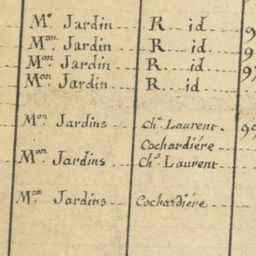 Mr Jardin R id 9
Mon Jardin R id 9
Mon Jardin R. id 97
Mon Jardin R. id
Mon Jardins Che Laurent. 99
Cochardiére
Mon Jardins Che Laurent
Mon Jardins Cochardiére